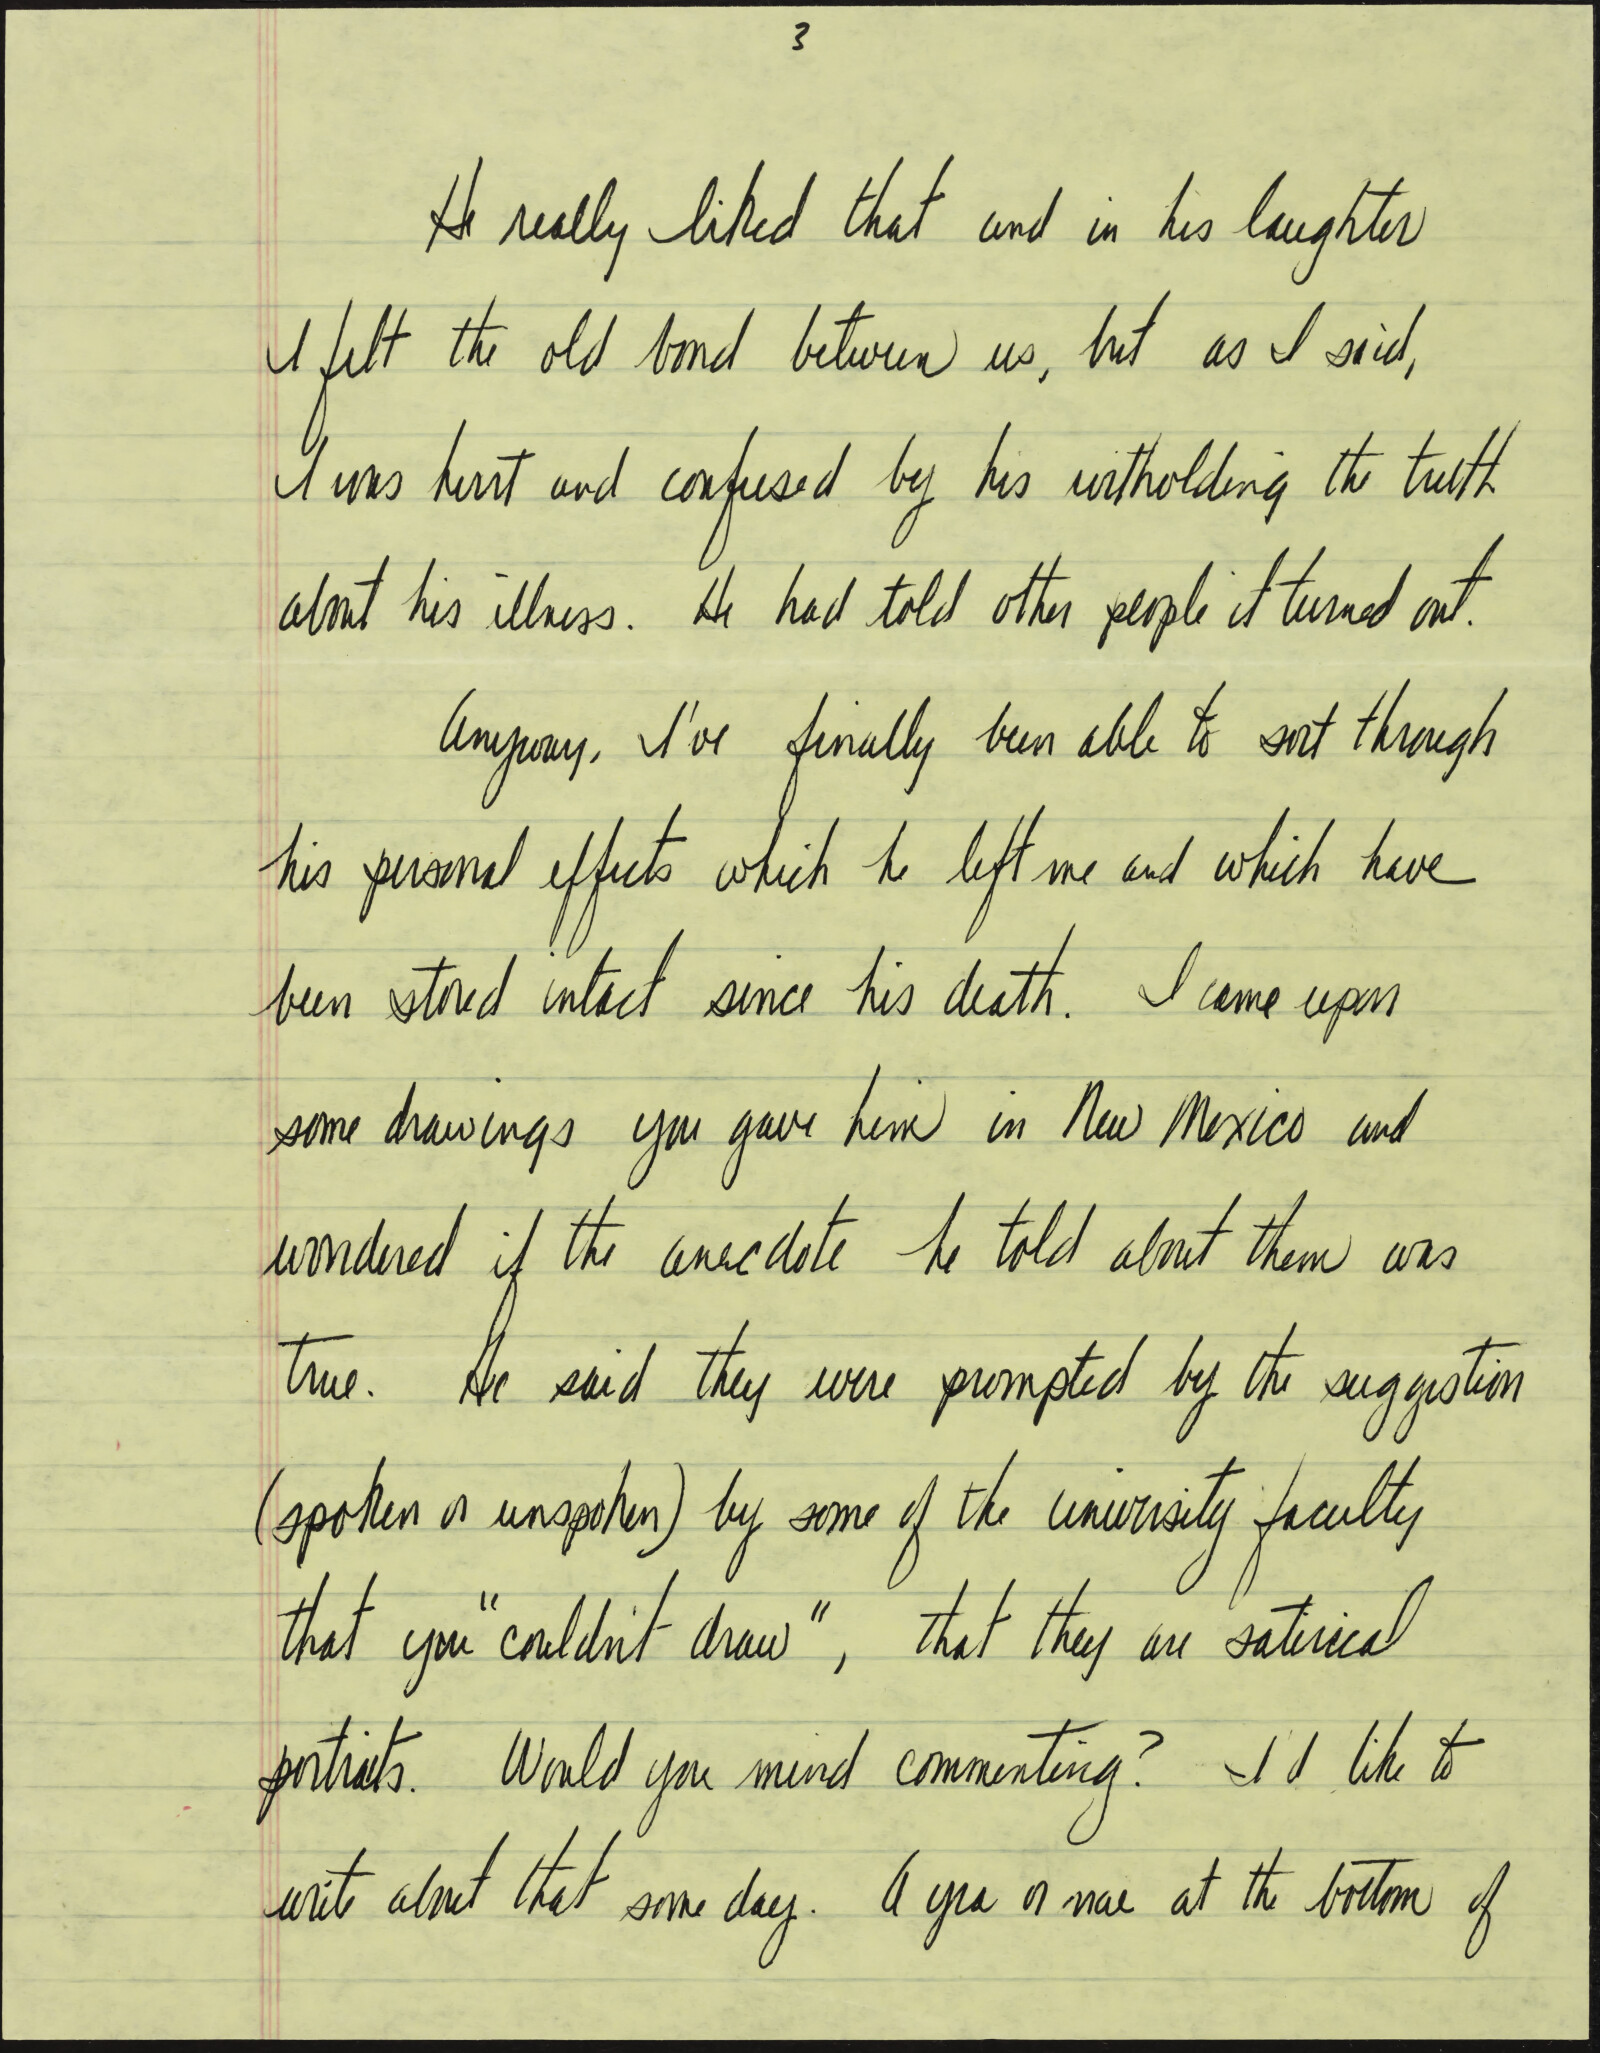 3
He really liked that and in his laughter
I felt the old bond between us, but as I said,
I was hurt and confused by his witholding the truth
about his illness. He had told other people it turned out.
Anyway, I've finally been able to sort through
his personal effects which he left me and which have
been stored intact since his death. I came upon
some drawings you gave him in New Mexico and
wondered if the anecdote he told about them was
true. He said they were prompted by the suggestion
(spoken or unspoken) by some of the university faculty
that you "couldn't draw", that they are satirical
portraits. Would you mind commenting? I'd like to
write about that some day. A yea or nae at the bottom of